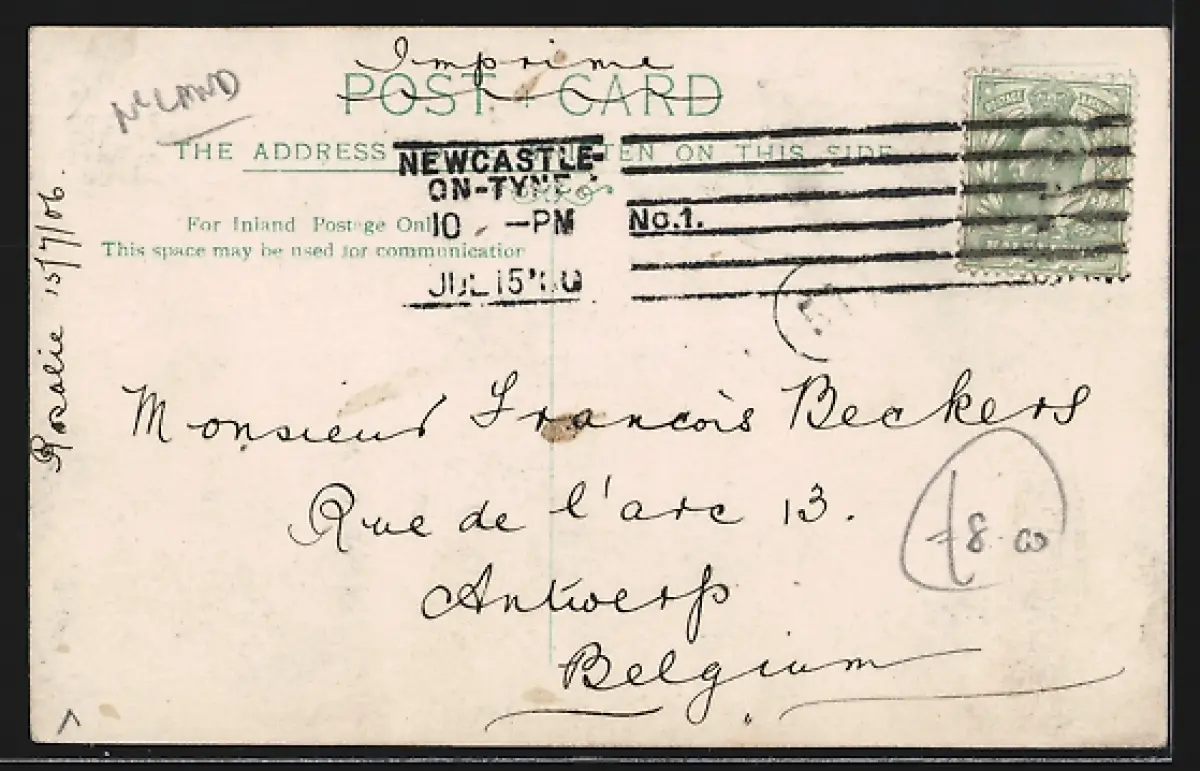 Imprimé
POST CARD
NLAND
THE ADDRESS TEN ON THIS SIDE
NEWCASTLE-
ON-TYNE
For Inland Postage Onl
10 -PM No.1.
This space may be used for communication
JUL 15
Rosalie 15/7/06.
Monsieur Francois Beckers
Rue de l'arc 13.
£8.00
Antwerp
Belgium